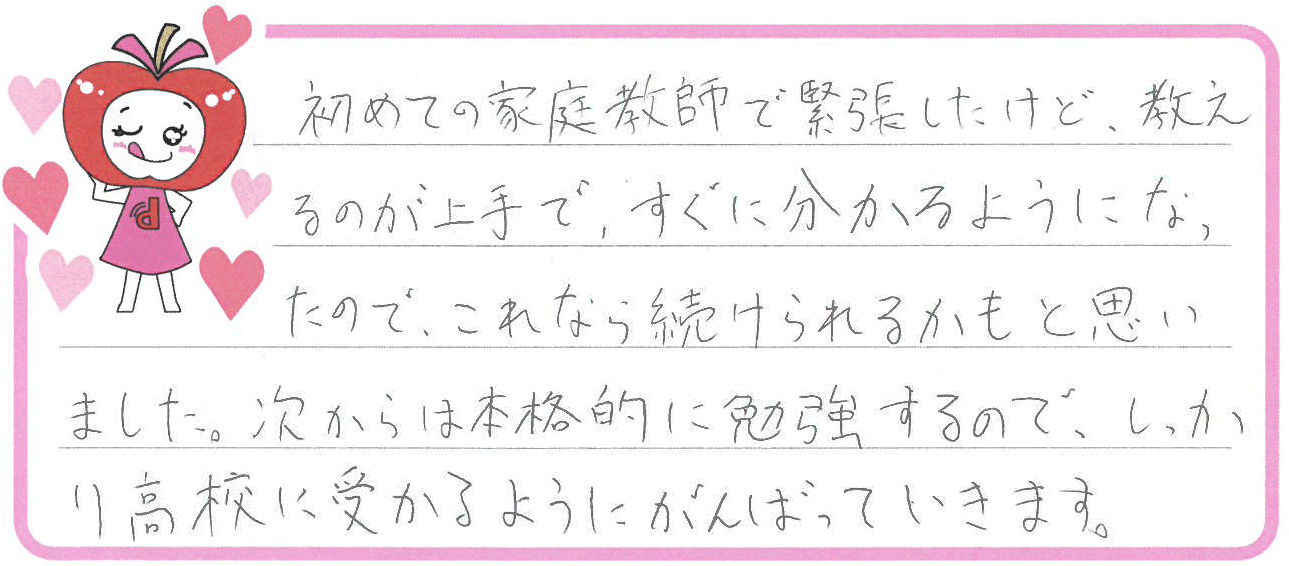 初めての家庭教師で緊張したけど、教え
るのが上手で、すぐに分かるようになっ
たので、これなら続けられるかもと思い
ました。次からは本格的に勉強するので、しっか
り高校に受かるようにがんばっていきます。